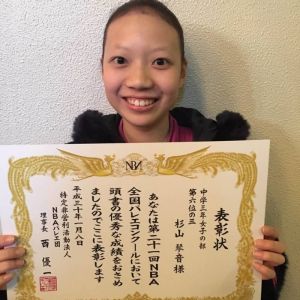 NBA
表彰状
中学三年女子の部
第六位の三
杉山 琴音様
あなたは第二十一回NBA
全国バレエコンクールにおいて
頭書の優秀な成績をおさめ
ましたのでここに表彰します
平成三十年一月八日
特定非営利活動法人
NBAバレエ団
理事長